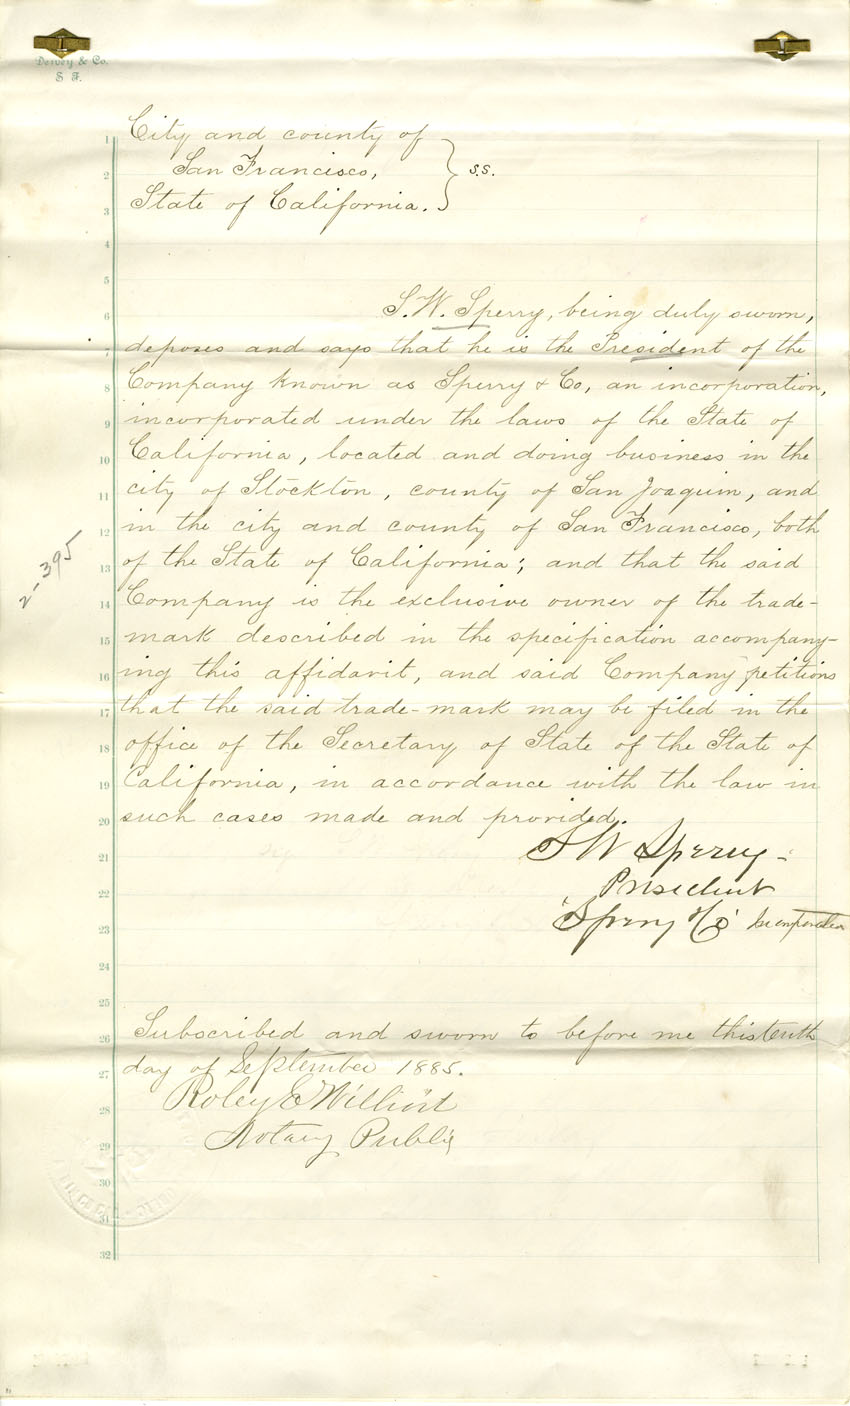 Dewey & Co.
S F.
City and county of
San Francisco,
State of California.
s.s.
S. W. Sperry, being duly sworn,
deposes and says that he is the President of the
Company known as Sperry & Co, an incorporation,
incorporated under the laws of the State of
California, located and doing business in the
city of Stockton, county of San Joaquin, and
in the city and county of San Francisco, both
of the State of California; and that the said
Company is the exclusive owner of the trade-
mark described in the specification accompany-
ing this affidavit, and said Company petitions
that the said trade-mark may be filed in the
office of the Secretary of State of the State of
California, in accordance with the law in
such cases made and provided.
S W Sperry
President
"Sperry & Co" Incorporation
2-395
Subscribed and sworn to before me this tenth
day of September 1885.
Notary Public
1
2
3
4
5
6
7
8
9
10
11
12
13
14
15
16
17
18
19
20
21
22
23
24
25
26
27
28
29
30
31
32